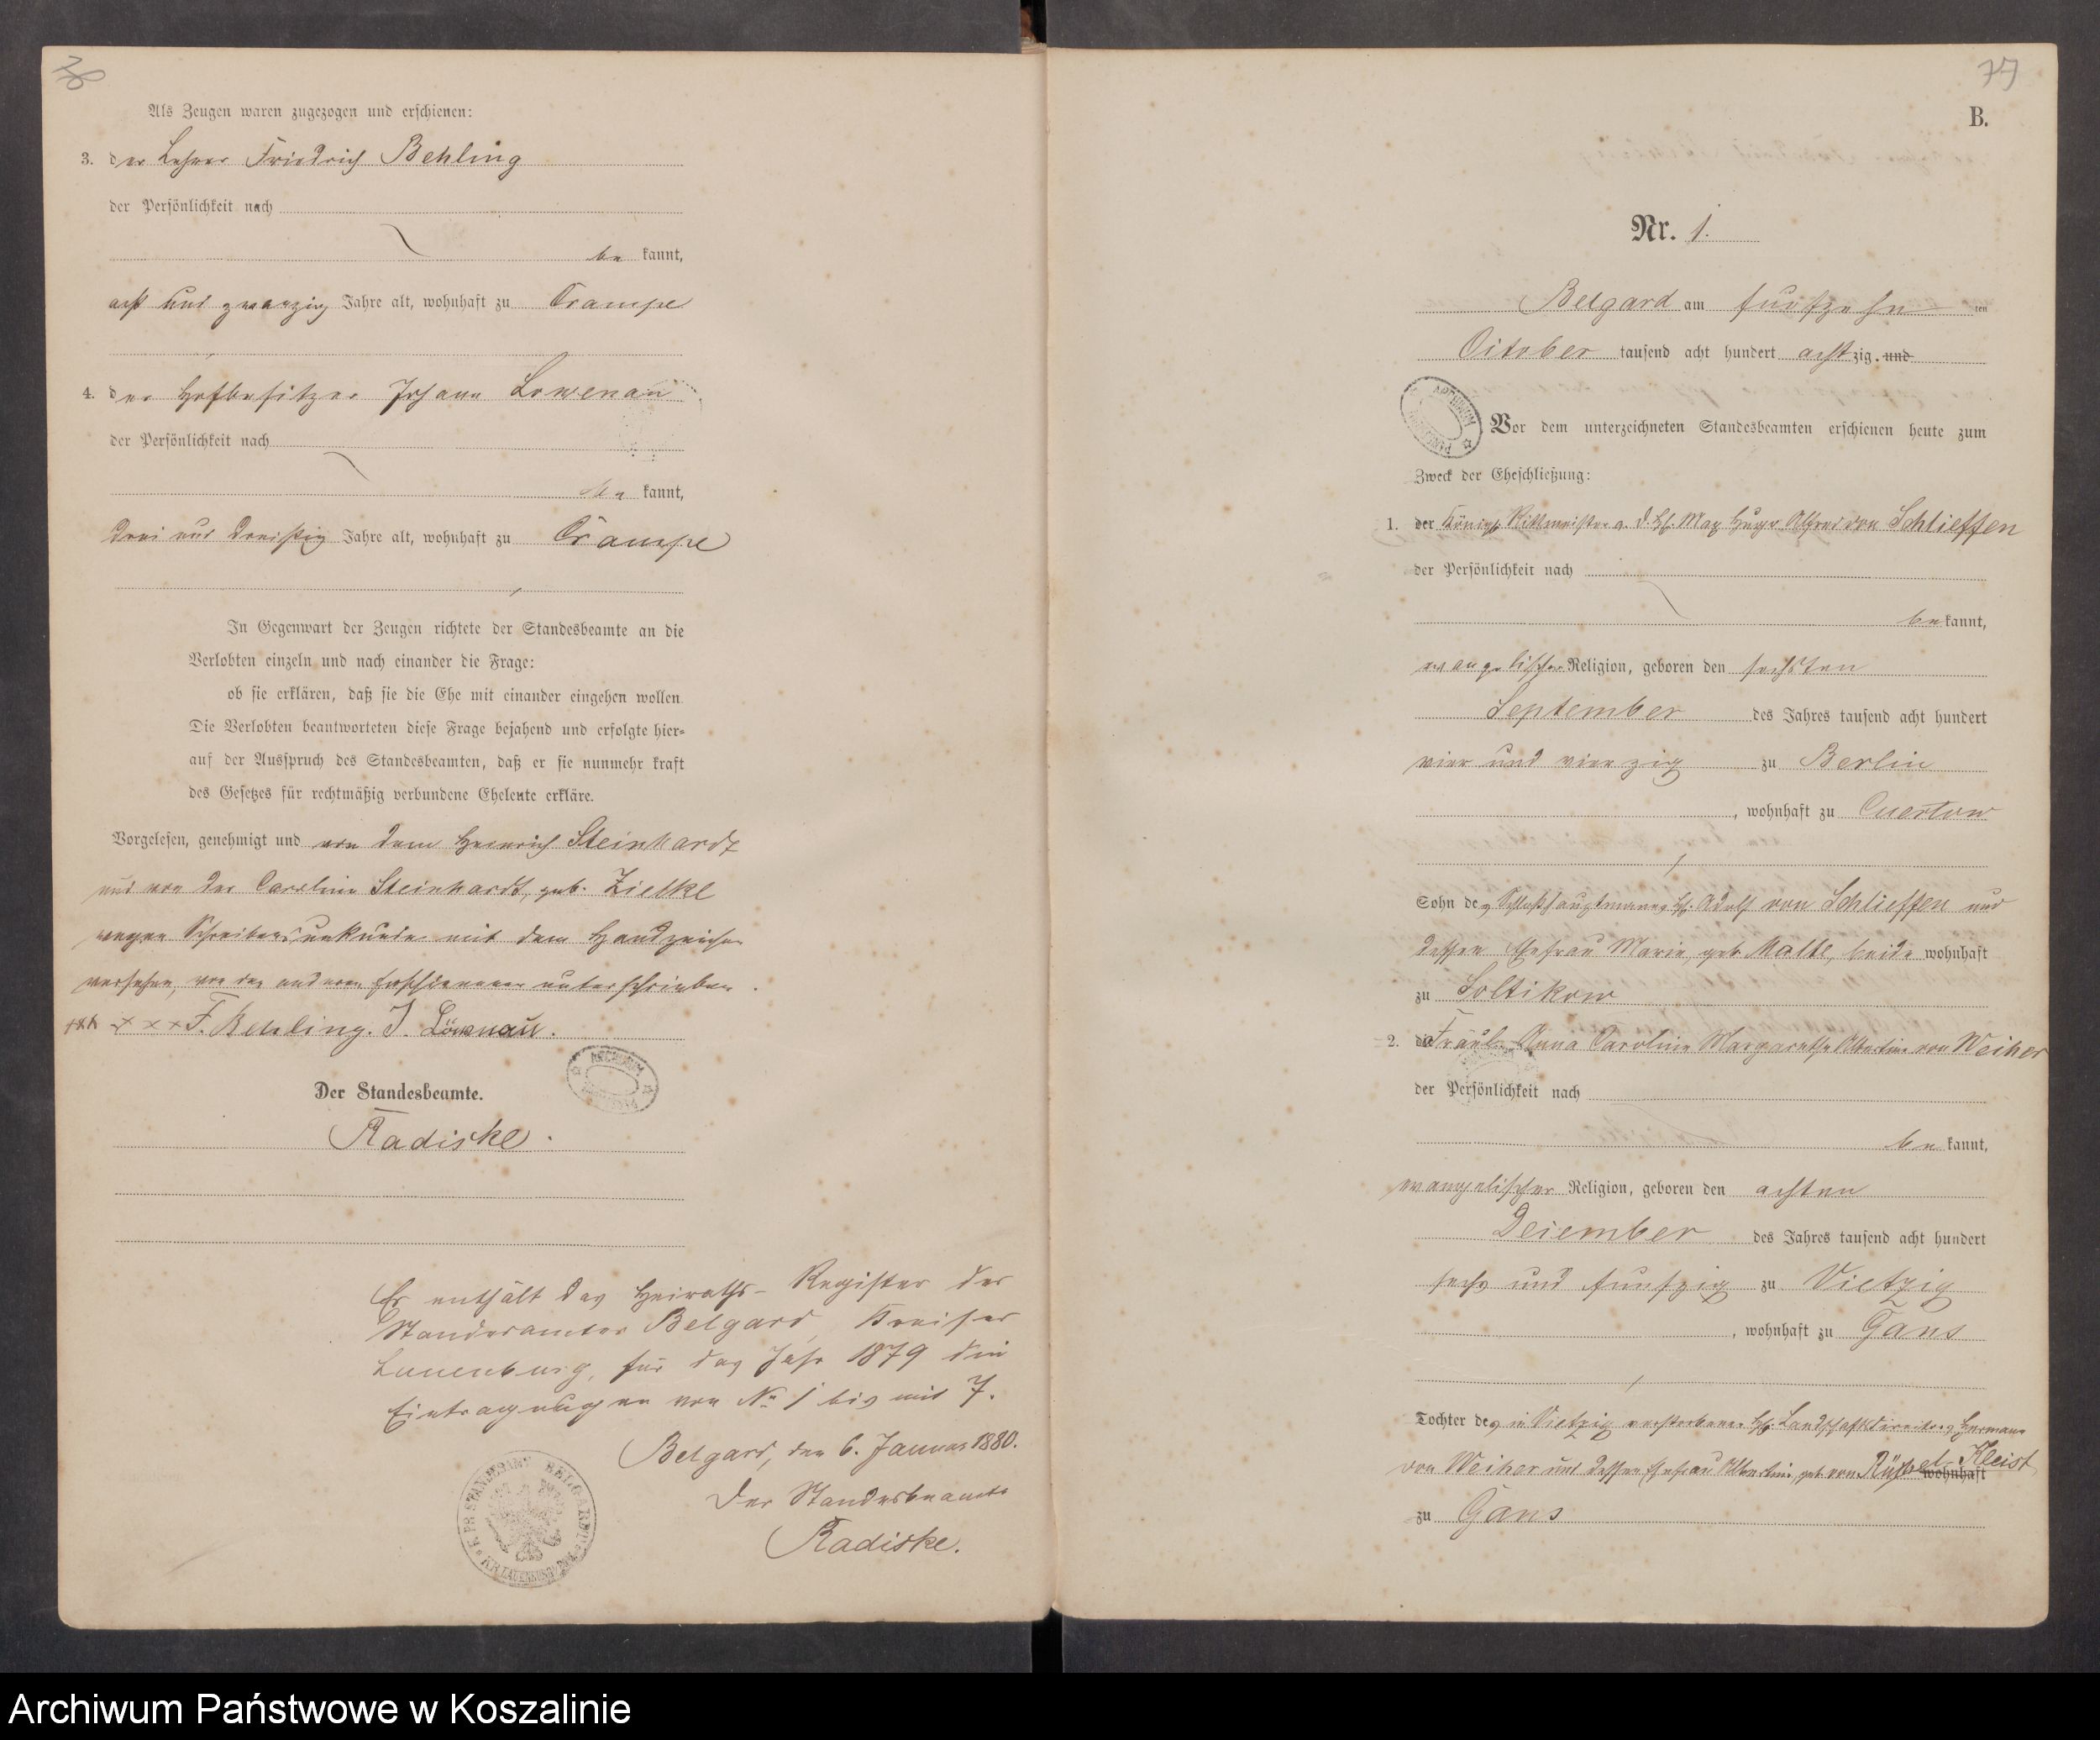 Als Zeugen waren zugezogen und erschienen:
3. der Lehrer Friedrich Behling
der Persönlichkeit nach
be kannt,
acht und zwanzig Jahre alt, wohnhaft zu Crampe
4. der Hofbesitzer Johann Lowenau
der Persönlichkeit nach
be kannt,
drei und dreißig Jahre alt, wohnhaft zu Crampe
In Gegenwart der Zeugen richtete der Standesbeamte an die
Verlobten einzeln und nach einander die Frage:
ob sie erklären, daß sie die Ehe mit einander eingehen wollen.
Die Verlobten beantworteten diese Frage bejahend und erfolgte hier=
auf der Ausspruch des Standesbeamten, daß er sie nunmehr kraft
des Gesetzes für rechtmäßig verbundene Eheleute erkläre.
Vorgelesen, genehmigt und von dem Heinrich Steinhardt
und von der Caroline Steinhardt, geb. Zielke
wegen Schreibensunkunde mit dem Handzeichen
versehen, von den anderen Erschienenen unterschrieben.
+++ +++ F. Behling. J. Löwenau.
ARCHIWUM
Der Standesbeamte.
Radiske.
Es enthält das Heiraths-Register des
Standesamtes Belgard, Kreises
Lauenburg, für das Jahr 1879 die
Eintragungen von No 1 bis mit 7.
Belgard, den 6. Januar 1880.
Der Standesbeamte
Radiske.
K. PR. STANDESAMT BELGARD
KR. LAUENBURG
77
B.
Nr. 1.
Belgard am funfzehn ten
October tausend acht hundert achtzig. und
ARCHIWUM
Vor dem unterzeichneten Standesbeamten erschienen heute zum
Zweck der Eheschließung:
1. der Königl. Rittmeister a. D. H. Max Hugo Alfred von Schlieffen
der Persönlichkeit nach
be kannt,
evangelischer Religion, geboren den sechsten
September des Jahres tausend acht hundert
vier und vierzig zu Berlin
, wohnhaft zu Cuertow
Sohn des Schloßhauptmanns H. Adolf von Schlieffen und
dessen Ehefrau Marie, geb. Maltt, beide wohnhaft
zu Soltikow
2. die Fräul. Anna Caroline Margarethe Albertine von Weiher
der Persönlichkeit nach
be kannt,
evangelischer Religion, geboren den achten
December des Jahres tausend acht hundert
sechs und funfzig zu Vietzig
, wohnhaft zu Gans
Tochter des in Vietzig verstorbenen H. Landschaftsdirectors Hermann
von Weiher und dessen Ehefrau Albertine, geb. von Kleist wohnhaft
zu Gans
Archiwum Państwowe w Koszalinie